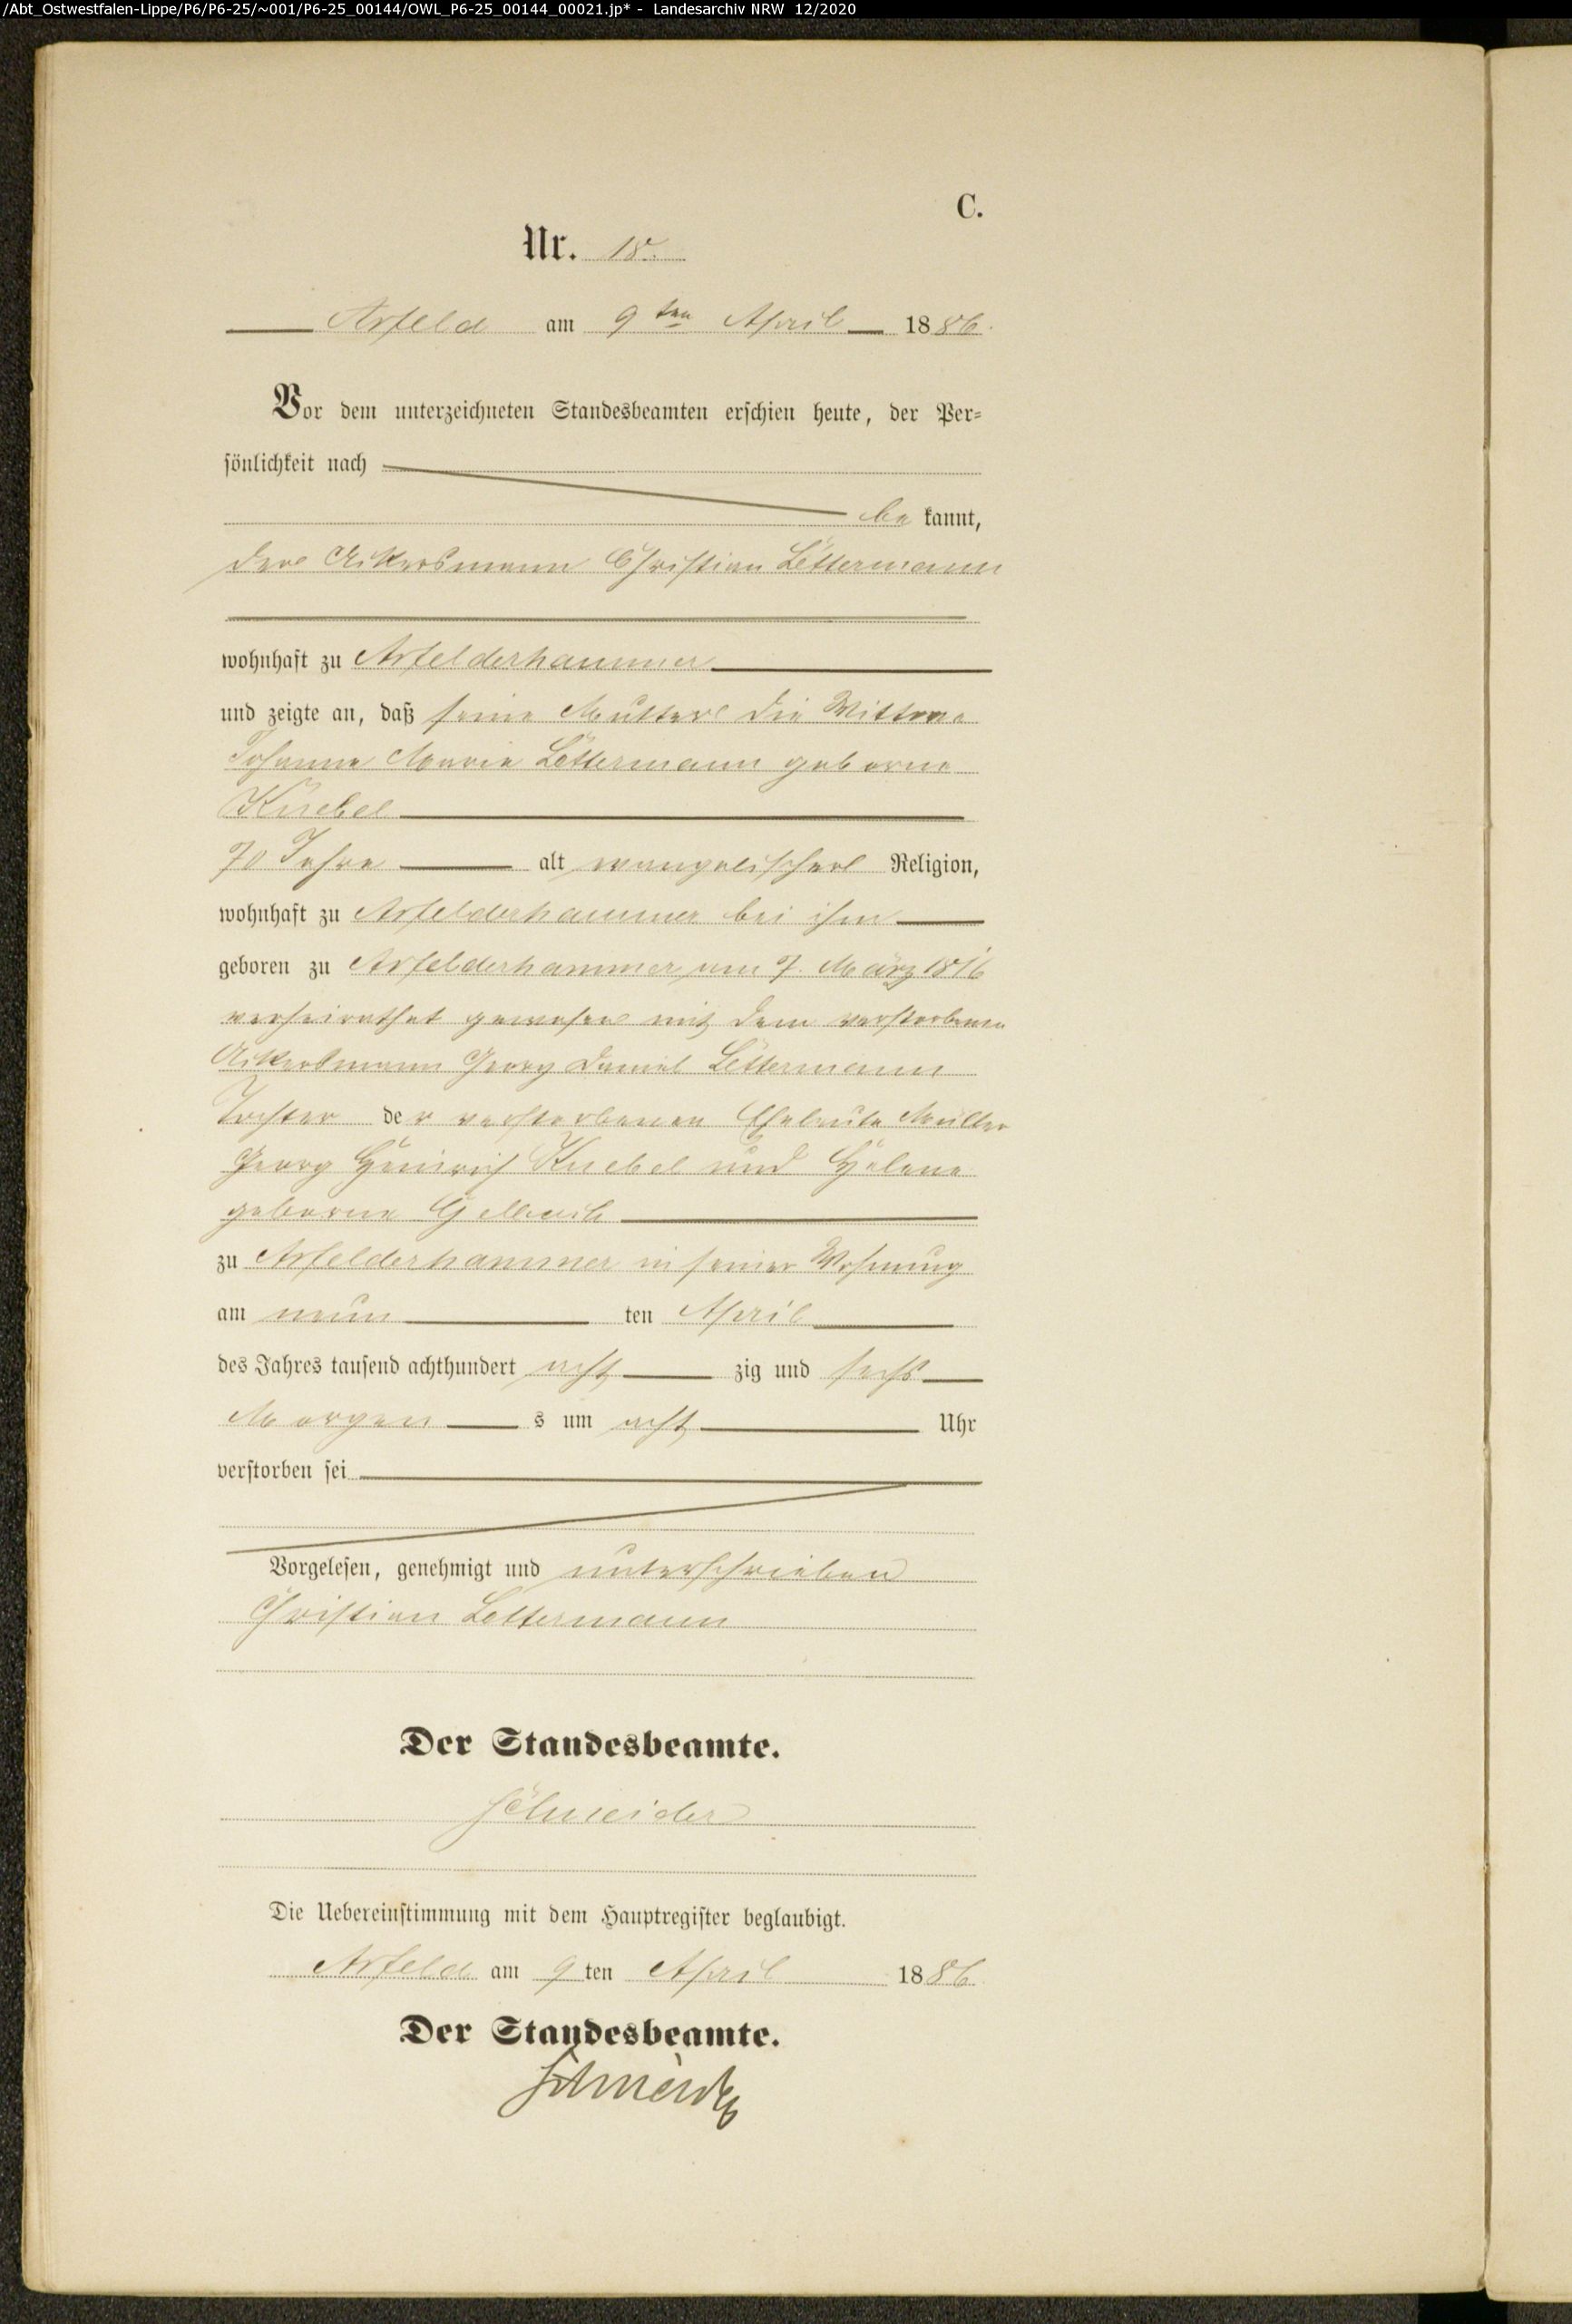 /Abt_Ostwestfalen-Lippe/P6/P6-25/~001/P6-25_00144/OWL_P6-25_00144_00021.jp* - Landesarchiv NRW 12/2020
C.
Nr. 18.
Arfeld am 9ten April 1886.
Vor dem unterzeichneten Standesbeamten erschien heute, der Per-
sönlichkeit nach
be kannt,
der Ackersmann Christian Lettermann
wohnhaft zu Arfelderhammer
und zeigte an, daß seine Mutter die Wittwe
Johanne Marie Lettermann geborne
Knebel
70 Jahre alt evangelischer Religion,
wohnhaft zu Arfelderhammer bei ihm
geboren zu Arfelderhammer am 7. März 1816
verheirathet gewesen mit dem verstorbenen
Ackersmann Georg Daniel Lettermann
Tochter der verstorbenen Eheleute Müller
Georg Heinrich Knebel und Helene
geborne
zu Arfelderhammer in seiner Wohnung
am neun ten April
des Jahres tausend achthundert acht zig und sechs
Morgen s um acht Uhr
verstorben sei
Vorgelesen, genehmigt und unterschrieben
Christian Lettermann
Der Standesbeamte.
Schneider
Die Uebereinstimmung mit dem Hauptregister beglaubigt.
Arfeld am 9 ten April 1886
Der Standesbeamte.
Schneider